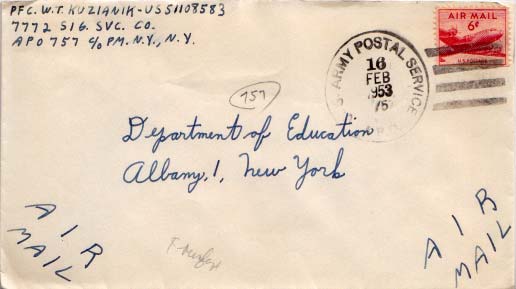 PFC. W.T. KUZIANIK-US51108583
7772 SIG. SVC. CO.
APO 757 c/o PM. N.Y., N.Y.
AIR MAIL
6¢
U.S. POSTAGE
ARMY POSTAL SERVICE
16
FEB
1953
757
Department of Education
Albany, 1, New York
AIR
MAIL
AIR
MAIL